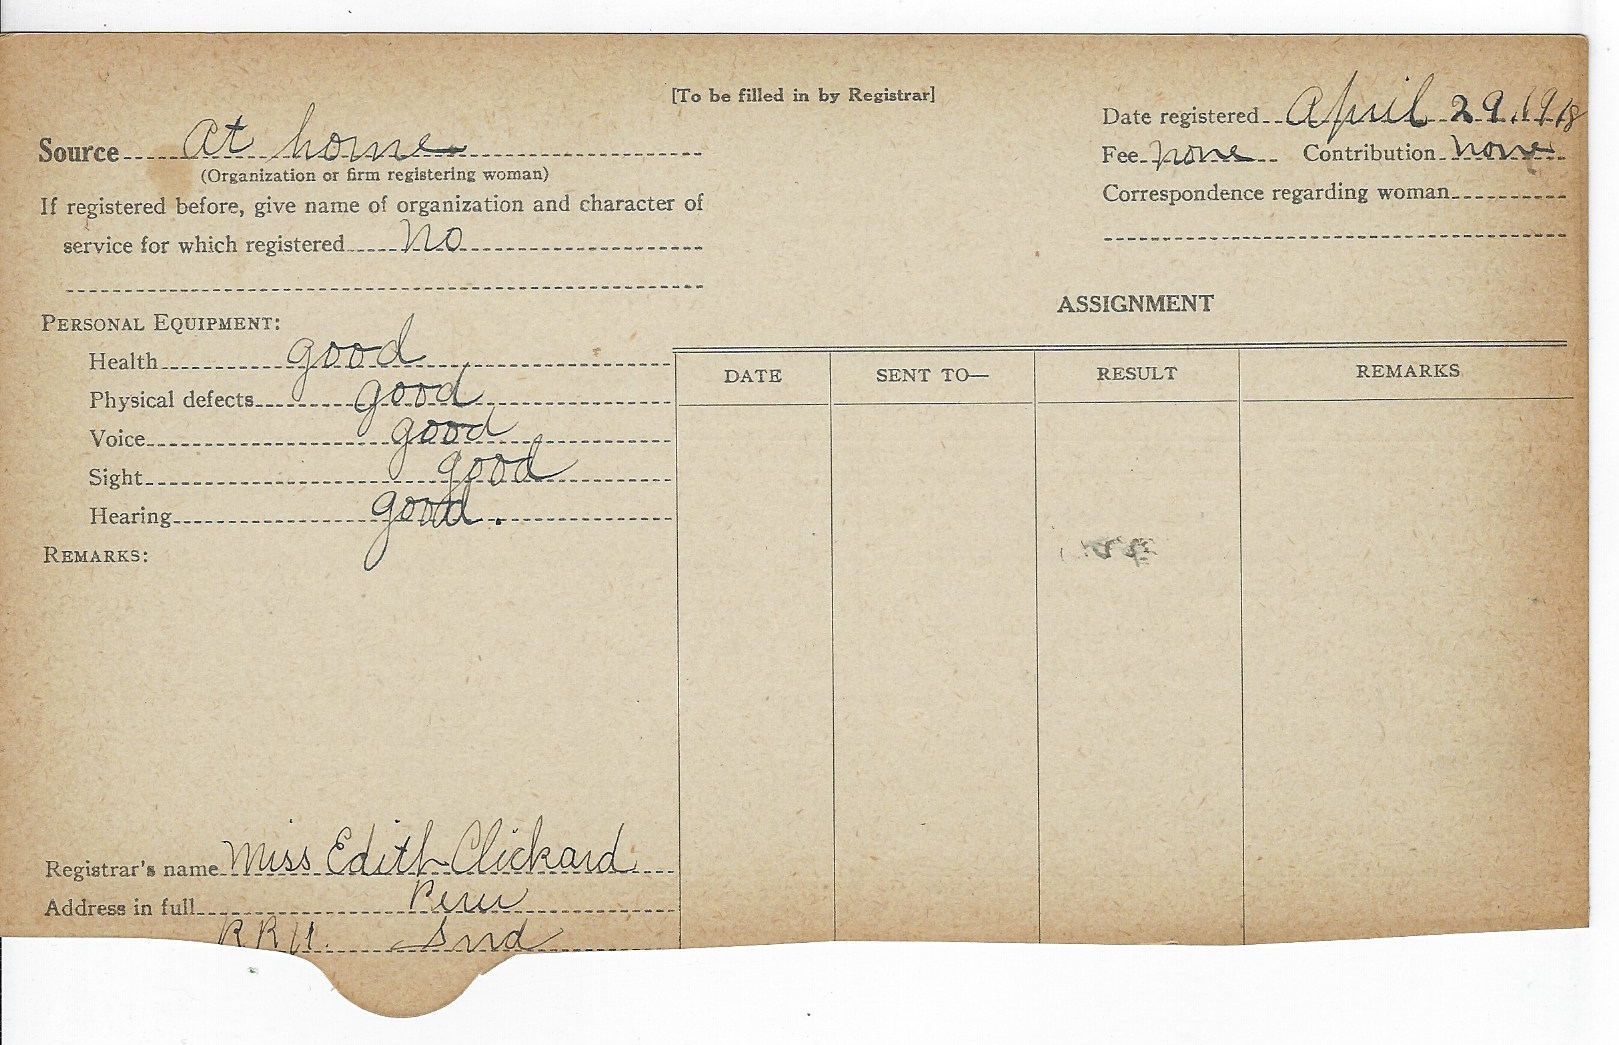 [To be filled in by Registrar]
Source At home
(Organization or firm registering woman)
If registered before, give name of organization and character of
service for which registered No
Date registered April 29, 1918
Fee none Contribution none
Correspondence regarding woman
PERSONAL EQUIPMENT:
Health good
Physical defects good
Voice good
Sight good
Hearing good.
REMARKS:
ASSIGNMENT
DATE SENT TO— RESULT REMARKS
Registrar's name Miss Edith Clickard
Address in full Peru
R R Ind